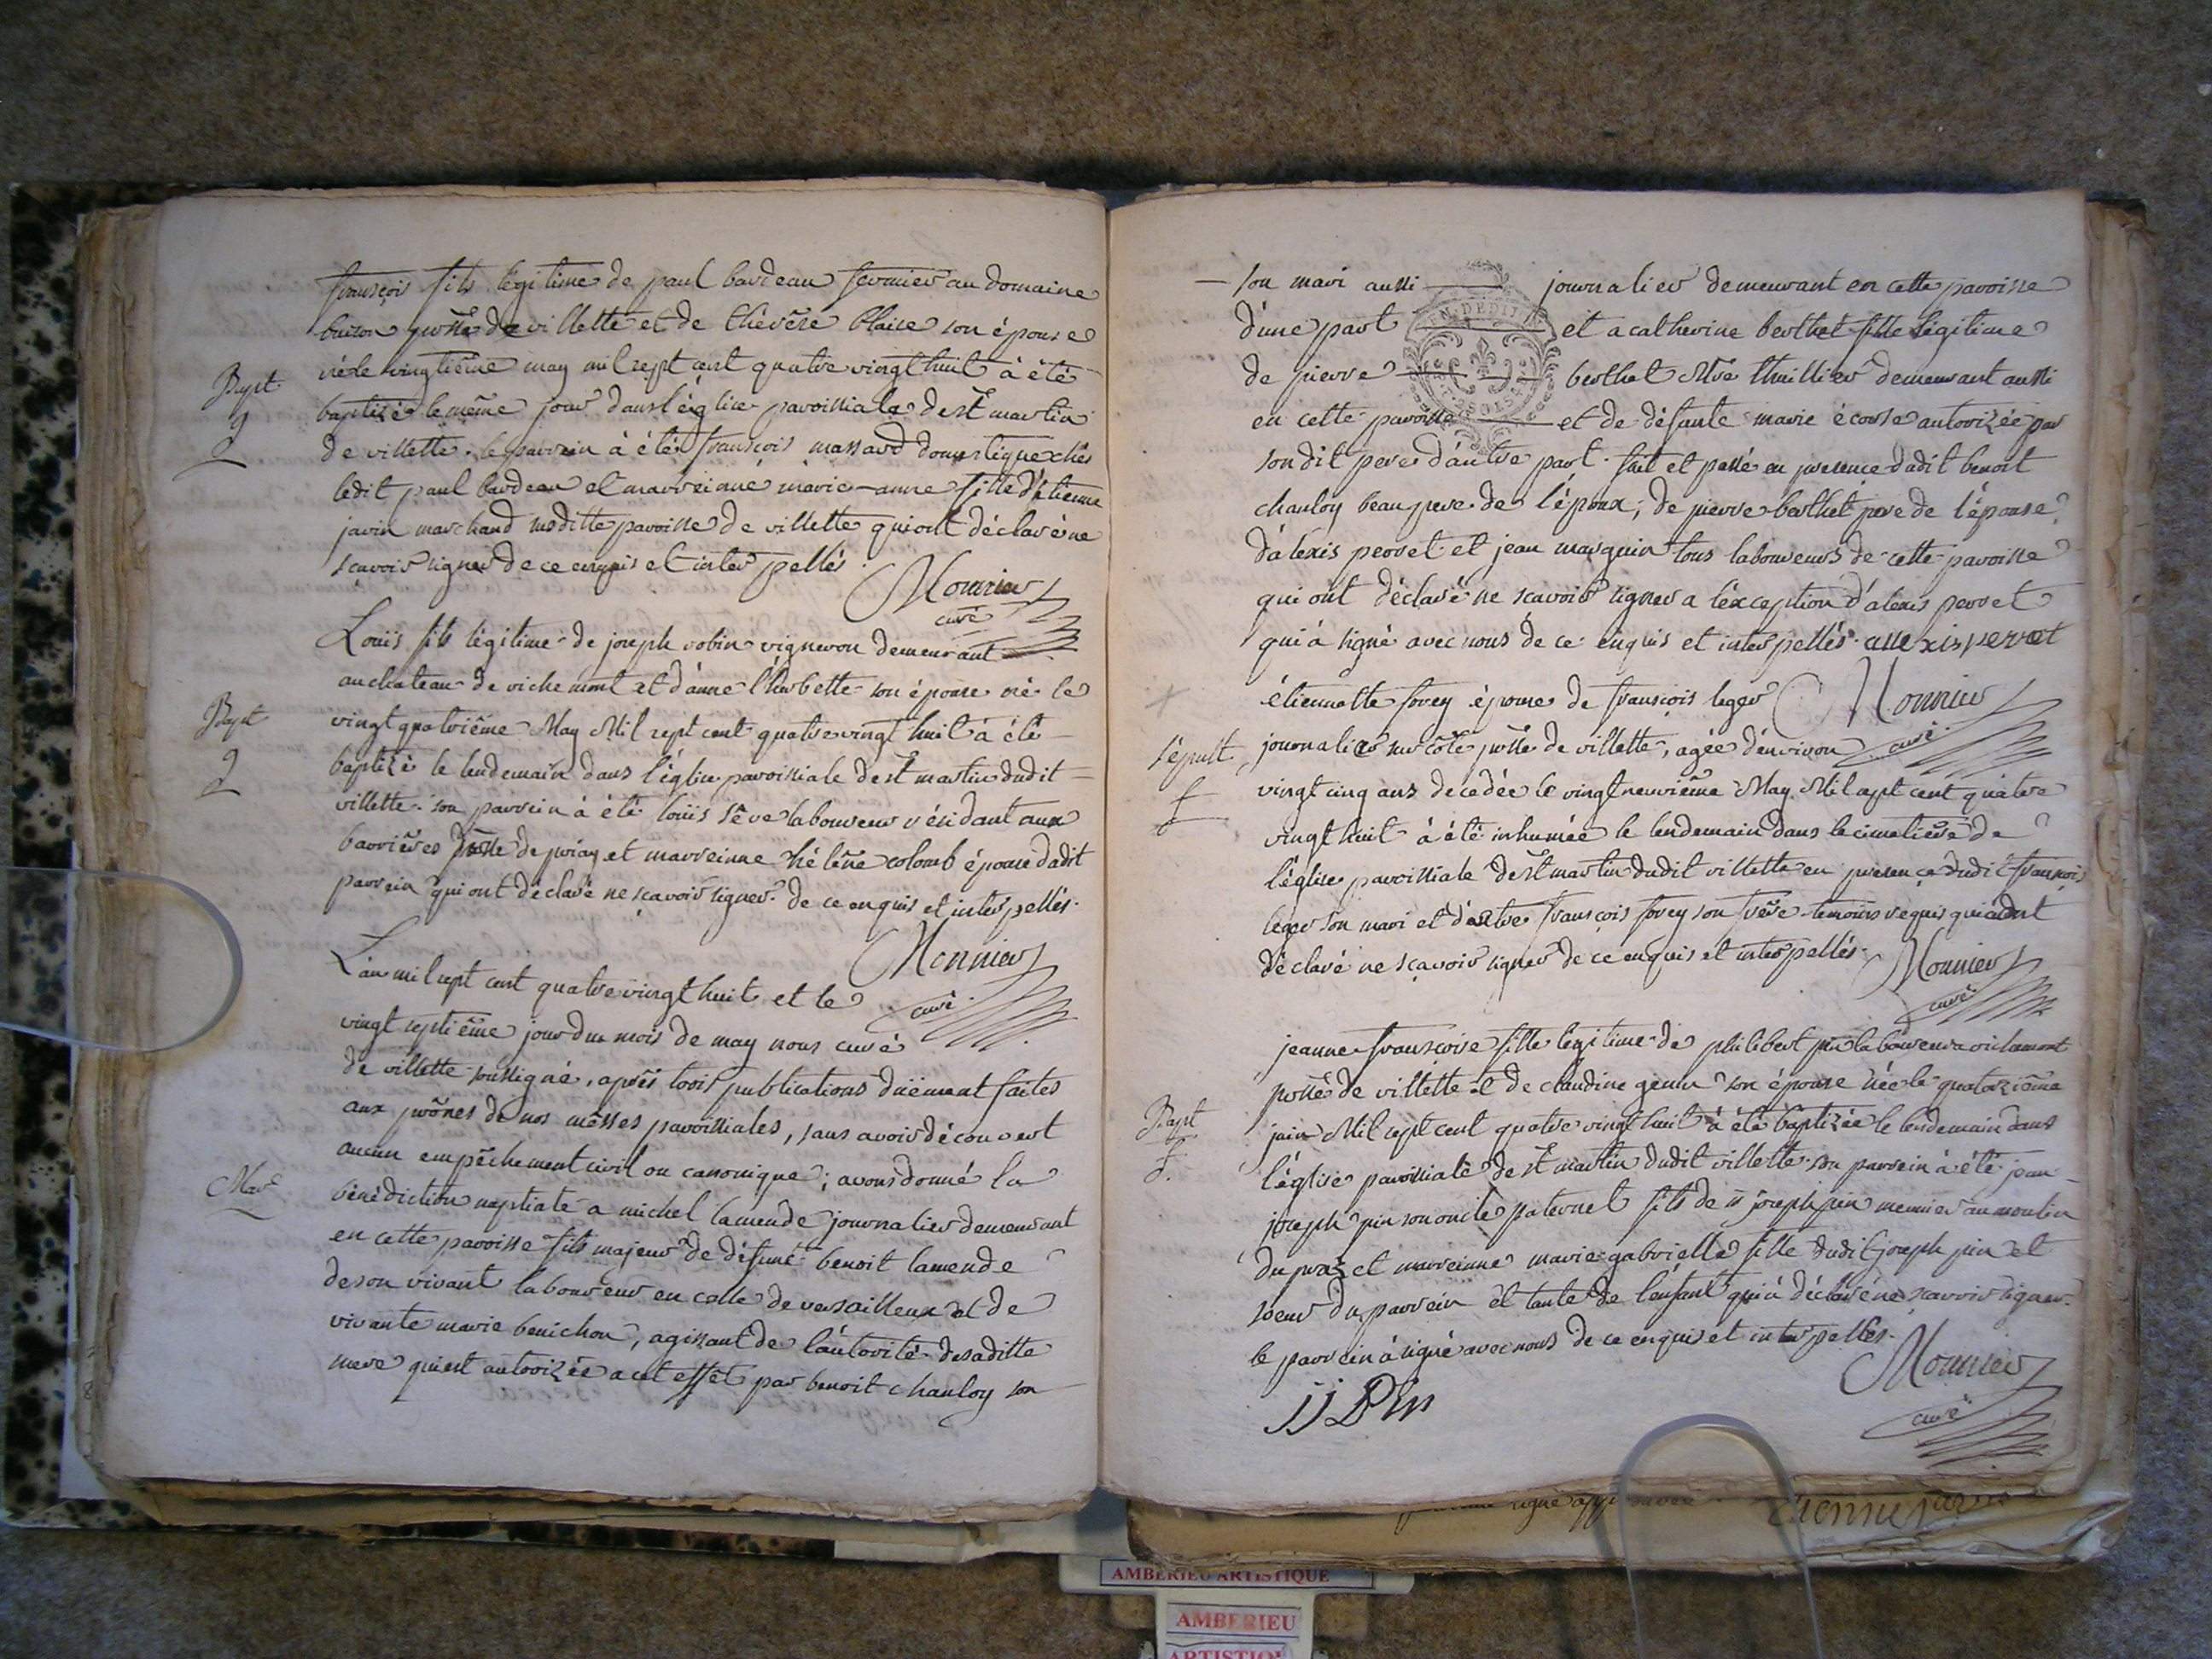 françois fils légitime de paul bardeau fermier au domaine
buison psse de villette et de thérèse blaise son épouse
né le vingtième may mil sept cent quatre vingt huit à été
Bapt
g
2
baptizé le même jour dans l'église paroissiale de st martin
de villette. le parrein à été françois massard domestique chés
ledit paul bardeau et marreinne marie-anne fille d'étienne
javin marchand susditte paroisse de villette qui ont déclaré ne
sçavoir signer de ce enquis et interpellés.
Monnier
curé
Louis fils légitime de joseph robin vigneron demeurant
au chateau de richemont et d'anne l'herbette son épouse né le
Bapt
g
2
vingt quatrième May Mil sept cent quatre vingt huit à été
baptizé le lendemain dans l'église paroissiale de st martin dudit
villette. son parrein à été loüis sêve laboureur résidant aux
barrières psse de priay et marreinne hélène colomb épouse dudit
parrein qui ont déclaré ne sçavoir signer. de ce enquis et interpellés.
Monnier
curé
L'an mil sept cent quatre vingt huit et le
vingt septième jour du mois de may nous curé
de villette soussigné, après trois publications düement faites
aux prônes de nos messes paroissiales, sans avoir découvert
aucun empêchement civil ou canonique; avons donné la
Mare
bénédiction nuptiale a michel lamende journalier demeurant
en cette paroisse fils majeur de défunt benoit lamende
de son vivant laboureur en celle de versailleux et de
vivante marie benichon, agissant de l'autorité de saditte
mere qui est autorizée a cet effet par benoit chauloy son
— son mari aussi — journalier demeurant en cette paroisse
d'une part — et a catherine berthet fille légitime
de pierre — berthet Mre thuillier demeurant aussi
en cette paroisse — et de défunte marie écosse autorizée par
son dit pere d'autre part. fait et passé en presence dudit benoit
chauloy beau pere de l'époux; de pierre berthet pere de l'épouse
d'alexis perret et jean marguin tous laboureurs de cette paroisse
qui ont déclaré ne scavoir signer a l'exception d'alexis perret
qui à signé avec nous de ce enquis et interpellés. allexis perret
Monnier
curé
étiennette forey épouse de françois leger
Sépult.
f
journalier sur côte psse de villette, agée d'environ
vingt cinq ans decedée le vingt neuvième May Mil sept cent quatre
vingt huit à été inhumée le lendemain dans le cimetière de
l'église paroissiale de st martin dudit villette en presence dudit françois
leger son mari et d'autre françois forey son frère temoins requis qui ont
déclaré ne sçavoir signer de ce enquis et interpellés.
Monnier
curé
jeanne françoise fille légitime de philibert pin laboureur a richemont
psse de villette et de claudine genin son épouse née le quatorzième
Bapt
f
juin Mil sept cent quatre vingt huit à été baptizée le lendemain dans
l'église paroissiale de st martin dudit villette. son parrein à été jean
joseph pin son oncle paternel fils de sr joseph pin meunier au moulin
du praz et marreinne marie gabrielle fille dudit joseph pin et
soeur du parrein et tante de l'enfant qui à déclaré ne sçavoir signer.
le parrein à signé avec nous de ce enquis et interpellés.
Monnier
curé
jj Pin
AMBERIEU ARTISTIQUE
AMBERIEU
ARTISTIQUE